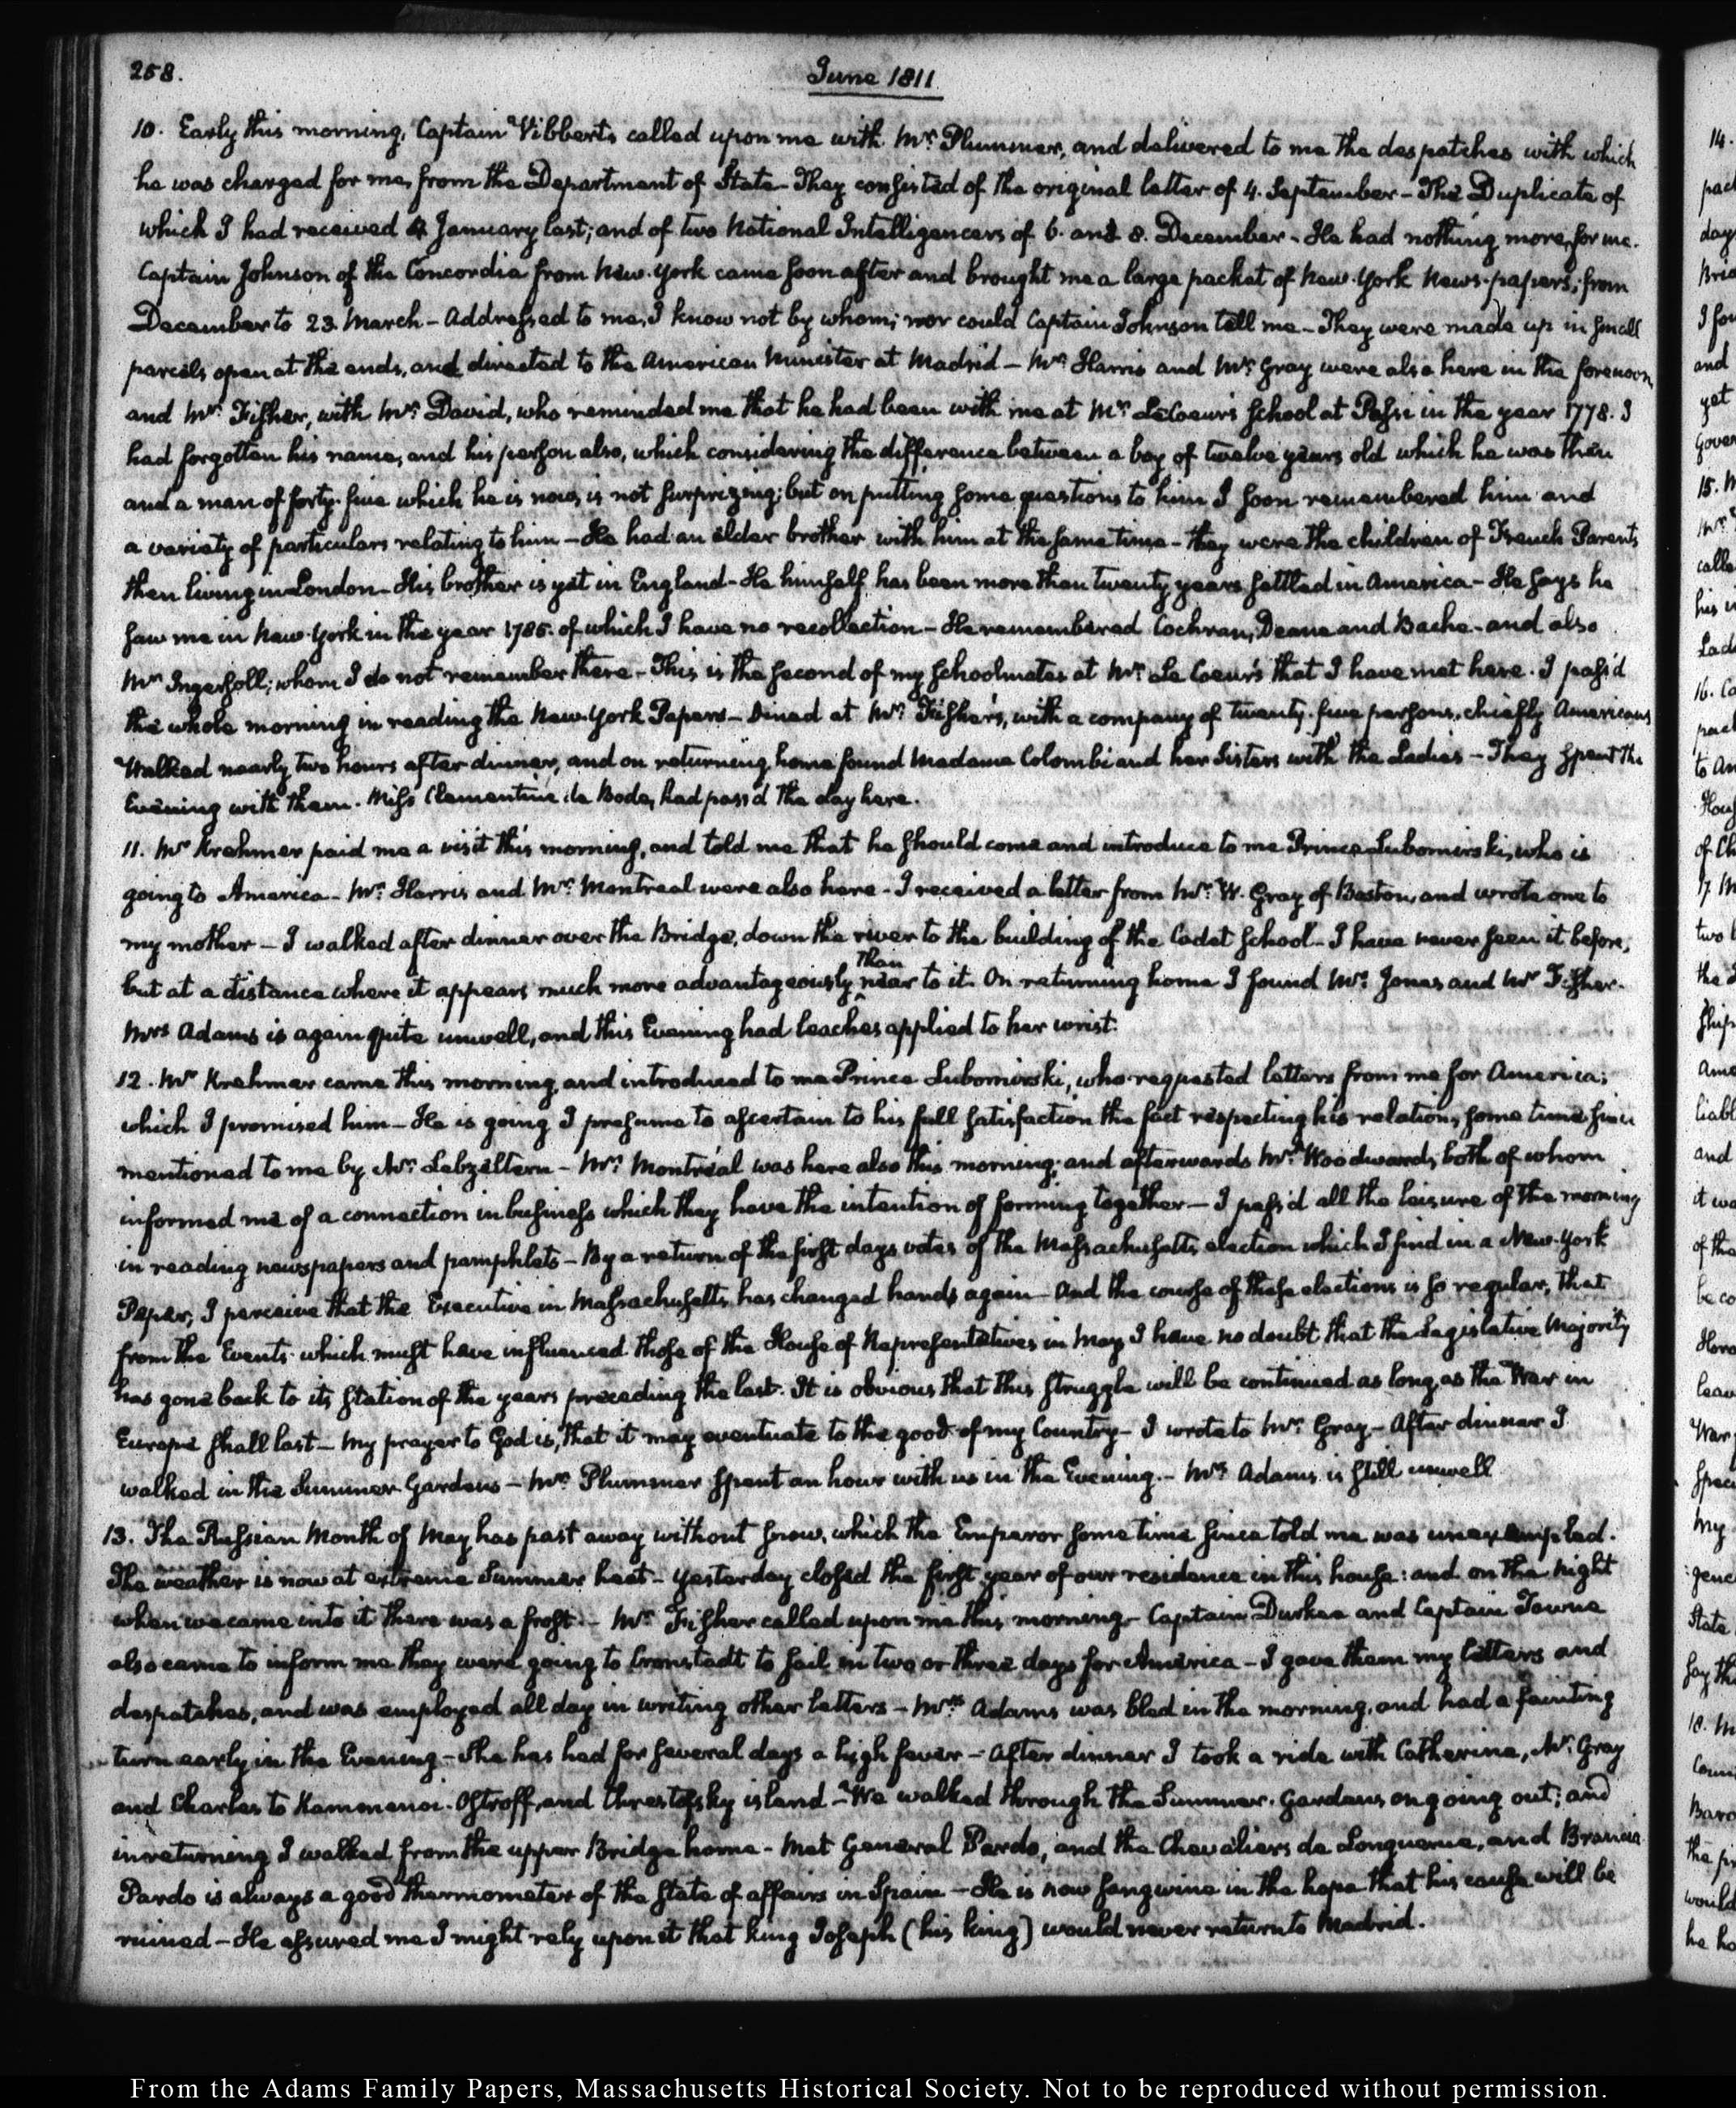 258.
June 1811.
10. Early this morning, Captain Vibberts called upon me with Mr. Plummer, and delivered to me the despatches with which
he was charged for me, from the Department of State - They consisted of the original letter of 4. September - The Duplicate of
which I had received 4 January last; and of two National Intelligencers of 6. and 8. December - He had nothing more, for me.
Captain Johnson of the Concordia from New-York came soon after and brought me a large packet of New-York News-papers; from
December to 23. March - Addressed to me, I know not by whom; nor could Captain Johnson tell me - They were made up in small
parcels open at the ends, and directed to the American Minister at Madrid - Mr. Harris and Mr. Gray were also here in the forenoon,
and Mr. Fisher, with Mr. David, who reminded me that he had been with me at Mr. Le Coeur's School at Passi in the year 1778. I
had forgotten his name, and his person also, which considering the difference between a boy of twelve years old which he was then
and a man of forty-five which he is now, is not surprizing; but on putting some questions to him I soon remembered him and
a variety of particulars relating to him - He had an elder brother with him at the same time - they were the children of French Parents
then living in London - His brother is yet in England - He himself has been more than twenty years settled in America - He says he
saw me in New-York in the year 1785. of which I have no recollection - He remembered Cochran, Deane and Bache - and also
Mr Ingersoll; whom I do not remember there - This is the second of my schoolmates at Mr. Le Coeur's that I have met here. I pass'd
the whole morning in reading the New-York Papers - Dined at Mr. Fisher's, with a company of twenty-five persons, chiefly Americans
Walked nearly two hours after dinner, and on returning home found Madame Colombi and her Sisters with the Ladies - They spent the
Evening with them. Miss Clementine de Bode, had pass'd the day here.
11. Mr Krehmer paid me a visit this morning, and told me that he should come and introduce to me Prince Lubomirski, who is
going to America - Mr. Harris and Mr. Montreal were also here - I received a letter from Mr. W. Gray of Boston, and wrote one to
my mother - I walked after dinner over the Bridge, down the river to the building of the Cadet School - I have never seen it before,
but at a distance where it appears much more advantageously ^than near to it. On returning home I found Mr. Jones and Mr Fisher.
Mrs Adams is again quite unwell, and this Evening had leaches applied to her wrist.
12. Mr Krehmer came this morning, and introduced to me Prince Lubomirski, who requested letters from me for America;
which I promised him - He is going I presume to ascertain to his full satisfaction the fact respecting his relation, some time since
mentioned to me by Mr. Lebzeltern - Mr. Montréal was here also this morning; and afterwards Mr. Woodward, both of whom
informed me of a connection in business which they have the intention of forming together - I pass'd all the leisure of the morning
in reading newspapers and pamphlets - By a return of the first days votes of the Massachusetts election which I find in a New-York
Paper, I perceive that the Executive in Massachusetts, has changed hands again - And the course of these elections is so regular, that
from the Events which must have influenced those of the House of Representatives in May I have no doubt that the Legislative Majority
has gone back to its station of the years preceding the last. It is obvious that this struggle will be continued as long as the War in
Europe shall last - My prayer to God is, that it may eventuate to the good of my Country - I wrote to Mr. Gray - After dinner I
walked in the Summer Gardens - Mr. Plummer spent an hour with us in the Evening. - Mrs. Adams is still unwell
13. The Russian Month of May has past away without snow, which the Emperor some time since told me was unexampled.
The weather is now at extreme Summer heat - Yesterday closed the first year of our residence in this house: and on the night
when we came into it there was a frost - Mr. Fisher called upon me this morning - Captain Durkee and Captain Towne
also came to inform me they were going to Cronstadt to sail in two or three days for America - I gave them my letters and
despatches, and was employed all day in writing other letters - Mrs. Adams was bled in the morning, and had a fainting
turn early in the Evening - She has had for several days a high fever - After dinner I took a ride with Catherine, Mr. Gray
and Charles to Kammenoi-Ostroff, and Chrestofsky island - We walked through the Summer-Gardens, on going out; and
in returning I walked from the upper Bridge home - Met General Pardo, and the Chevaliers de Longuerue, and Brancia
Pardo is always a good thermometer of the state of affairs in Spain - He is now sanguine in the hope that his cause will be
ruined - He assured me I might rely upon it that king Joseph (his king) would never return to Madrid.
From the Adams Family Papers, Massachusetts Historical Society. Not to be reproduced without permission.